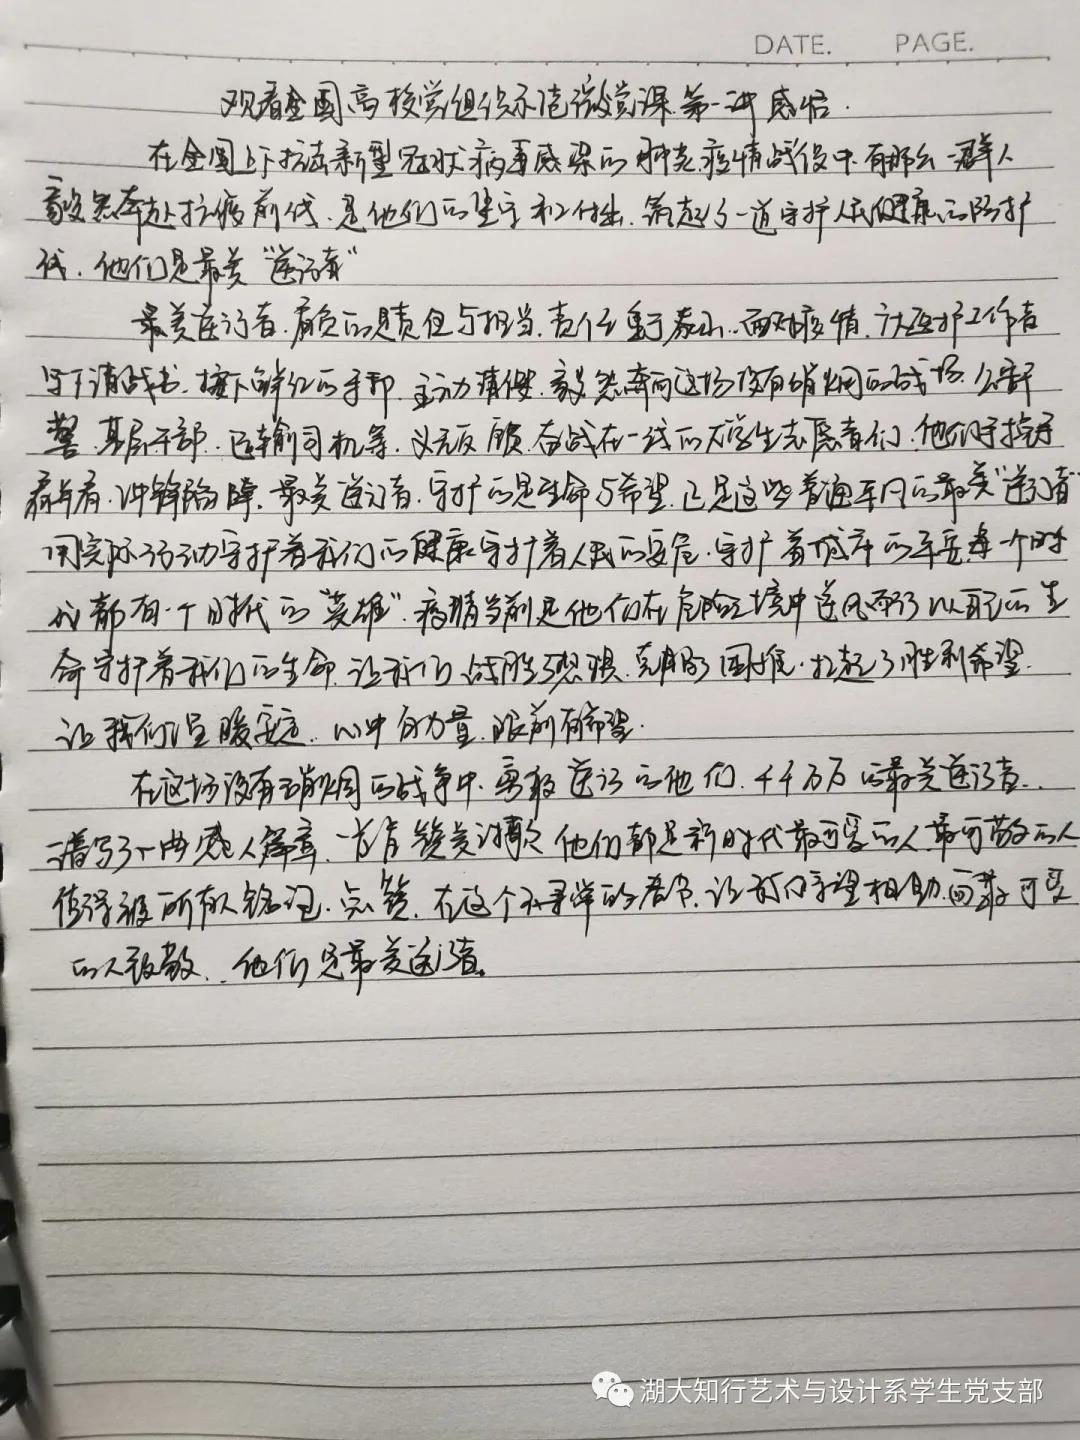 DATE. PAGE.
观看全国高校党组织示范微党课第一讲感悟.
在全国上下抗击新型冠状病毒感染的肺炎疫情战役中.有那么一群人
毅然奔赴抗疫前线.是他们的坚守和付出.筑起了一道守护人民健康的防护
线.他们是最美“逆行者”
最美逆行者.肩负的是责任与担当.责任重于泰山.面对疫情.广大医护工作者
写下请战书.按下鲜红的手印.主动请缨.毅然奔向这场没有硝烟的战场.公安干
警.基层干部.运输司机等.义无反顾.奋战在一线的大学生志愿者们.他们手挽手
肩并肩.冲锋陷阵.最美逆行者.守护的是生命与希望.正是这些普通平凡的最美“逆行者”
用实际行动守护着我们的健康.守护着人民的安危.守护着城市的平安.每一个时
代都有一个时代的“英雄”.疫情当前是他们在危险环境中逆风而行.以自己的生
命守护着我们的生命.让我们战胜了恐惧.克服了困难.扛起了胜利希望.
让我们 温暖安定.心中有力量.眼前有希望.
在这场没有硝烟的战争中.勇敢逆行的他们.千千万万的最美逆行者..
谱写了一曲感人篇章.一首首赞美诗歌.他们都是新时代最可爱的人.最可敬的人
值得被所有人铭记.点赞.在这个不寻常的春节.让我们守望相助.向最可爱
的人致敬..他们是最美逆行者。
湖大知行艺术与设计系学生党支部